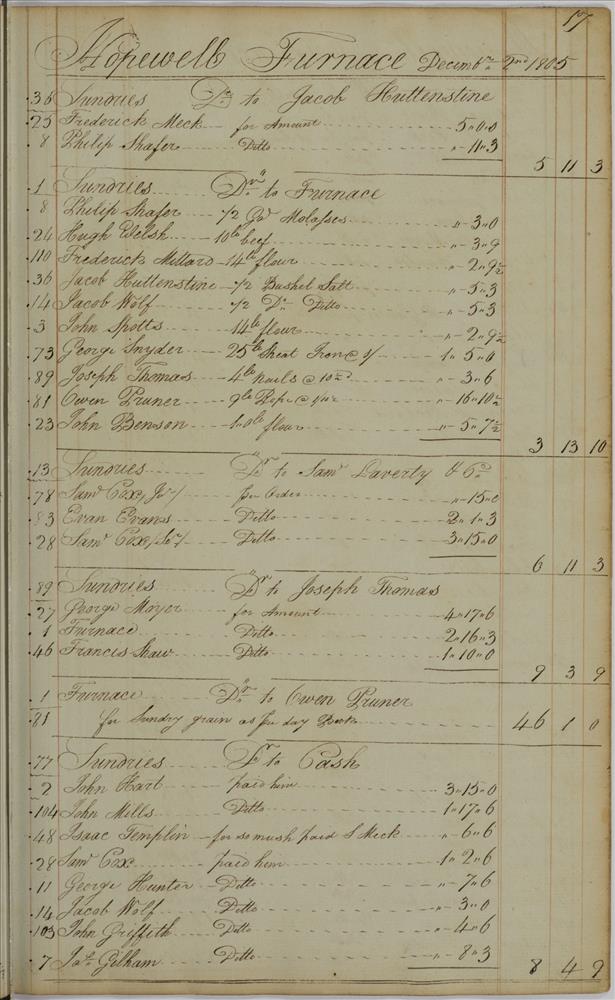 17
Hopewell Furnace Decembr 2nd 1805
36 Sundries Dr to Jacob Huttenstine
25 Frederick Meck for Amount 5 " 0 " 0
8 Philip Shafer Ditto " 11 " 3
5 11 3
1 Sundries Drs to Furnace
8 Philip Shafer 1/2 Gal Molasses " 3 " 0
24 Hugh Welsh 10lb beef " 3 " 9
110 Frederick Millard 14lb flour " 2 " 9 1/2
36 Jacob Huttenstine 1/2 Bushel Salt " 5 " 3
14 Jacob Wolf 1/2 Do Ditto " 5 " 3
3 John Spotts 14lb flour " 2 " 9 1/2
73 George Snyder 25lb Sheat Iron @ 1/ 1 " 5 " 0
89 Joseph Thomas 4lb nails @ 10 1/2d " 3 " 6
81 Owen Pruner 9lb Rope @ " 16 " 10 1/2
23 John Benson flour " 5 " 7 1/2
3 13 10
13 Sundries Drs to Saml Laverty & Co
78 Saml Cox, Jr/ per Order " 15 " 0
83 Evan Evans Ditto 2 " 1 " 3
28 Saml Cox /Ser/ Ditto 3 " 15 " 0
6 11 3
89 Sundries Drs to Joseph Thomas
27 George Moyer for Amount 4 " 17 " 6
1 Furnace Ditto 2 " 16 " 3
46 Francis Shaw Ditto 1 " 10 " 0
9 3 9
1 Furnace Dr to Owen Pruner
81 for Sundry grain as per day Book 46 1 0
77 Sundries Dr to Cash
2 John Hart paid him 3 " 15 " 0
104 John Mills Ditto 1 " 17 " 6
48 Isaac Templin for so mush paid S Meck " 6 " 6
28 Saml Cox paid him 1 " 2 " 6
11 George Hunter Ditto " 7 " 6
14 Jacob Wolf Ditto " 3 " 0
103 John Griffith Ditto " 4 " 6
7 Jas Gilham Ditto " 8 " 3
8 4 9